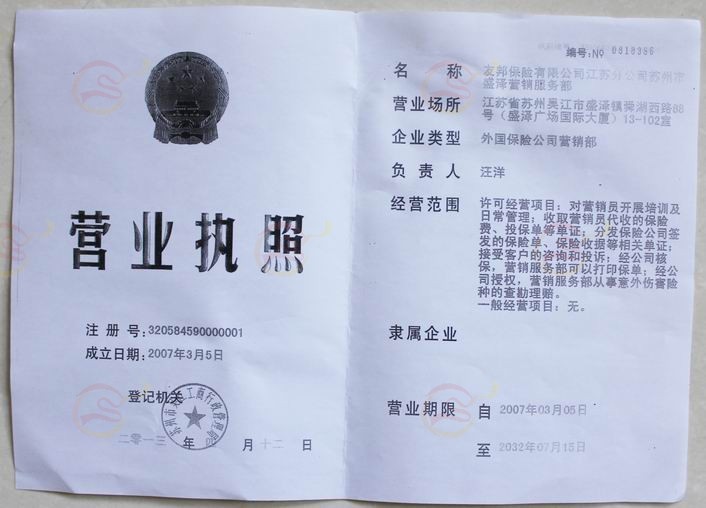 营业执照
注册号:320584590000001
成立日期:2007年3月5日
登记机关
二零一三 年 月十二 日
编号:№ 0818386
名称 友邦保险有限公司江苏分公司苏州市
盛泽营销服务部
营业场所 江苏省苏州吴江市盛泽镇舜湖西路88
号(盛泽广场国际大厦)13-102室
企业类型 外国保险公司营销部
负责人 汪洋
经营范围 许可经营项目:对营销员开展培训及
日常管理;收取营销员代收的保险
费、投保单等单证;分发保险公司签
发的保险单、保险收据等相关单证;
接受客户的咨询和投诉;经公司核
保,营销服务部可以打印保单;经公
司授权,营销服务部从事意外伤害险
种的查勘理赔。
一般经营项目:无。
隶属企业
营业期限 自 2007年03月05日
至 2032年07月15日